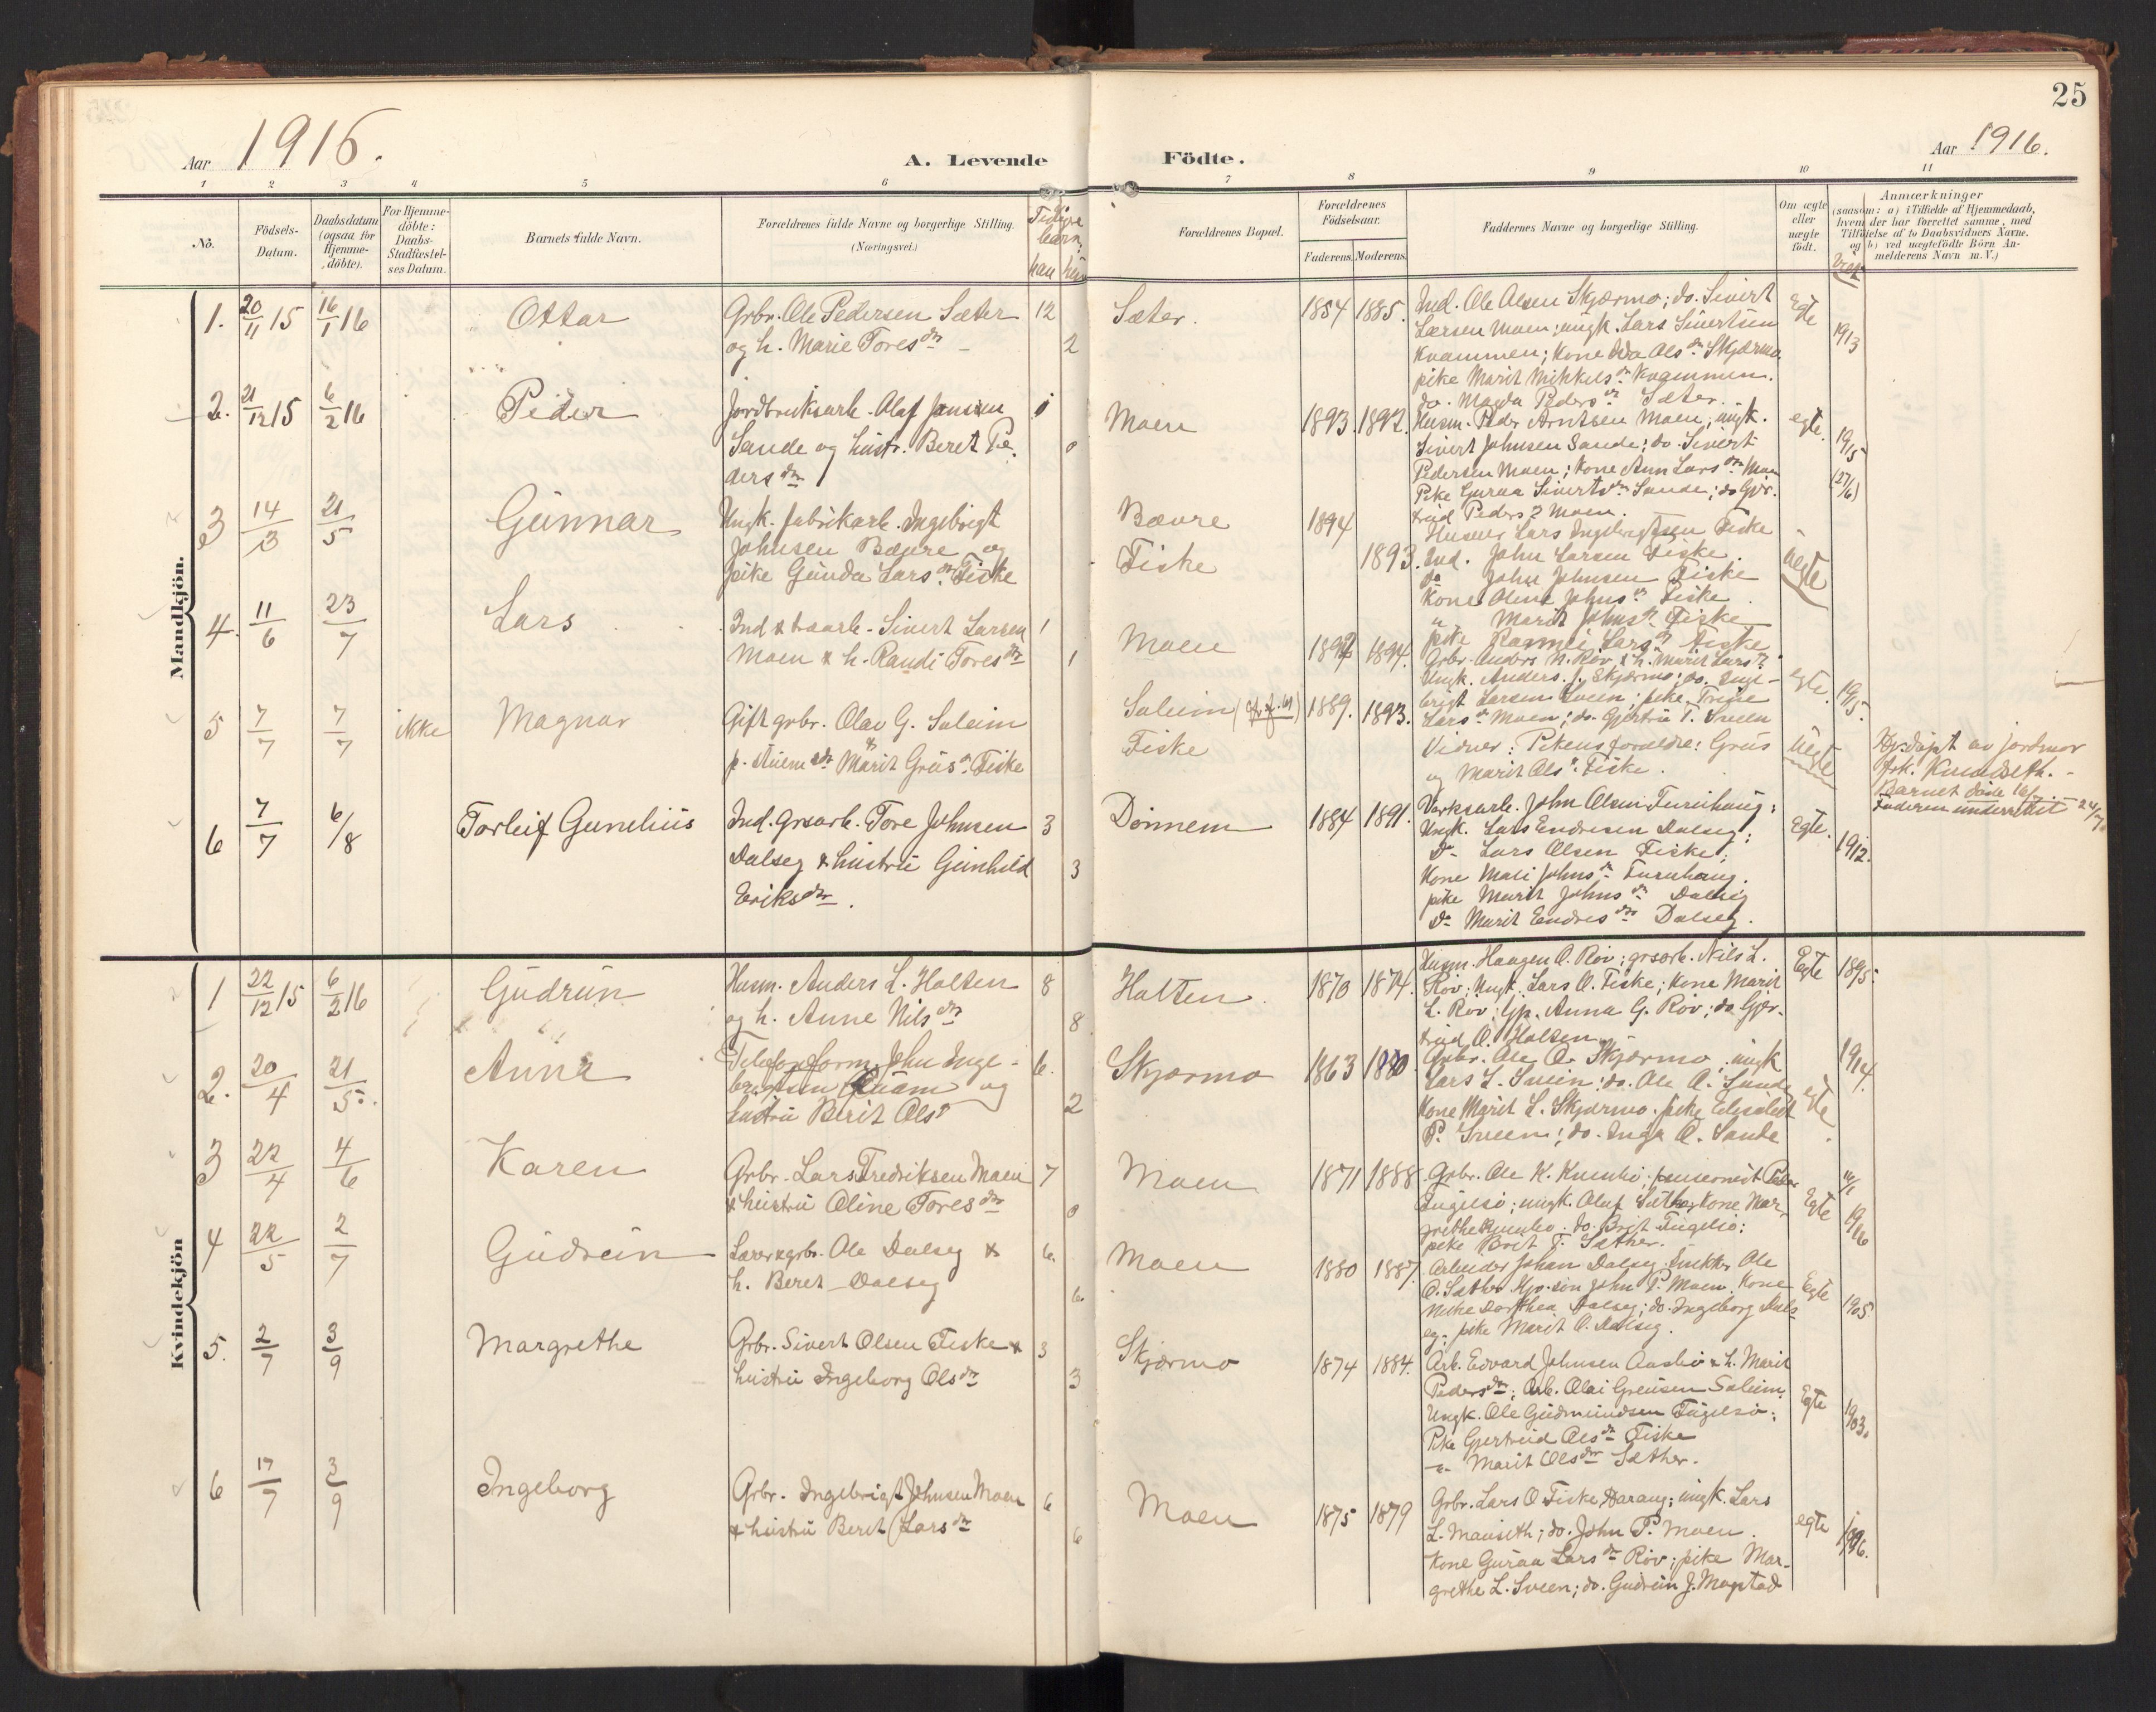 25
Aar 1916.
A. Levende
Födte.
Aar 1916.
1 2 3 4 5 6 7 8 9 10 11
No.
Födsels-
Datum.
Daabsdatum
(ogsaa for
Hjemme-
döbte).
For Hjemme-
döbte:
Daabs-
Stadfæstel-
ses Datum.
Barnets fulde Navn.
Forældrenes fulde Navne og borgerlige Stilling.
(Næringsvei.)
Tidligre
barn
han hun
Forældrenes Bopæl.
Forældrenes
Födselsaar.
Faderens. Moderens.
Faddernes Navne og borgerlige Stilling.
Om ægte
eller
uægte
födt.
Anmærkninger
(saasom: a) i Tilfælde af Hjemmedaab,
hvem der har forrettet samme, med
Tilföielse af to Daabsvidners Navne.
og b) ved uægtefödte Börn An-
melderens Navn m. V.)
Mandkjön.
1. 20/11 15 16/1 16 Ottar
Grbr. Ole Pedersen Sæter 12
og h. Marie Toresdtr 2
Sæter. 1854 1885.
Ind. Ole Olsen Skjærmo; do. Sivert
Larsen Moen; ungk. Lars Sivertsen
Kvammen; Kone Ols dtr Skjærmo
pike Marit Mikkelsdtr Kvammen.
do. Magda Pedersdtr Sæter.
Egte 1913
2. 21/12 15 6/2 16 Peder
Jordbruksarb. Olaf Jansen
Sande og hustr. Beret Pe- 0
dersdtr
Moen 1893. 1892.
Husm. Peder Arntsen Moen; ungk.
Sivert Johnsen Sande; do. Sivert
Pedersen Moen; Kone Ann Larsdtr Moen
Pike Guraa Sivertsdtr Sande; do Gjer-
trud Peders Moen.
egte. 1915
(27/6)
3 14/3 21/5 Gunnar
Ungk. fabrikarb. Ingebrigt
Johnsen Bævre og
pike Gunda Larsdtr Fiske
Bævre 1894
Fiske 1893.
Husm. Lars Ingebrigtsen Fiske
Ind. John Larsen Fiske.
do John Johnsen Fiske
Kone Oline Johnsdtr Fiske.
" Marit Johnsdtr Fiske
pike Ragnei Larsdtr Fiske
Uegte
4. 11/6 23/7 Lars
Ind & baarb. Sivert Larsen 1
Moen & h. Randi Toresdtr 1
Moen 1892 1894.
Grbr. Anders N. Röv & h. Marit Larsdtr
Ungk. Anders J. Skjærmo; do. Inge-
brigt Larsen Sveen; pike Trine
Larsdtr Moen; do. Gjertru T. Sveen
egte. 1915.
5 7/7 7/7 ikke Magnar
Gift grbr. Olav G. Soleim
p. & Marit Grusdtr Fiske
Soleim 1889. 1893.
Fiske
Vidner: Pikens foreldre: Grus
og Marit Olsdtr Fiske.
Uegte
Hj.döpt av jordmor
frk. Kunstseth.
Barnet döde 16/7.
Faderen underrettet 24/7
6 7/7 6/8 Torleif Gunelius
Ind. grsarb. Tore Johnsen 3
Dalseg & hustru Gunhild 3
Eriksdtr.
Dönnem 1884 1891.
Verksarb. John Olsen Furuhaug;
Ungk. Lars Endresen Dalseg;
Do Lars Olsen Fiske;
Kone Mali Johnsdtr Furuhaug.
pike Marit Johnsdtr Dalseg
Do Marit Endresdtr Dalseg.
Egte. 1912.
Kvindekjön
1 22/12 15 6/2 16 Gudrun
Husm. Anders L. Holten 8
og h. Anne Nilsdtr 8
Holten. 1870 1874.
Husm. Haagen O. Röv; grsarb. Nils L.
Röv; Ungk. Lars O. Fiske; Kone Marit
L. Röv; Gp. Anna G. Röv; do. Gjer-
trud O. Holten.
Egte 1895.
2. 20/4 21/5. Anna
Telefonform. John Inge- 6.
brigtsen Kvam og
hustru Berit Ols 2
Skjærmo 1863 1880.
Grbr. Ole O. Skjærmo; ungk
Lars L. Sveen; do. Ole A. Sande
Kone Marit L. Skjærmo. pike Elisabet
P. Sveen; do. Inga O. Sande
egte. 1914.
3 22/4 4/6 Karen
Grbr. Lars Fredriksen Moen 7
& hustru Oline Toresdtr 0
Moen 1871 1888.
Grbr. Ole K. Kvenbö; pensionist Peder
Fugelsö; ungk. Olaf Sæther; Kone Mar-
grethe Kvenbö. do. Brit Fugelsö:
pike Brit T. Sæther.
Egte 1916
4 22/5 2/7 Gudrun
Lærer & grbr. Ole Dalseg & 6.
h. Beret Dalseg 6.
Moen 1880 1887.
Arbeider Johan Dalseg. Enkem. Ole
O. Sæther. Gp. sön John P. Moen. Kone
Dorthea Dalseg; do. Ingeborg Dals-
eg. pike Marit O. Dalseg.
Egte 1905.
5. 2/7 3/9 Margrethe
Grbr. Sivert Olsen Fiske & 3
hustru Ingeborg Olsdtr 3
Skjærmo 1874 1884.
Arb. Edvard Johnsen Aasbö & h. Marit
Pedersdtr; Arb. Olai Greusen Soleim.
Ungk. Ole Gudmundsen Fugelsö;
Pike Gjertrud Olsdtr Fiske
" Marit Olsdtr Sæther.
Egte 1903.
6 17/7 3/9 Ingeborg
Grbr. Ingebrigt Johnsen Moen 6
& hustru Beret Larsdtr 6
Moen 1875 1879
Grbr. Lars O Fiske Harang; ungk. Lars
L. Mauseth; do. John P. Moen.
Kone Guraa Larsdtr Röv; pike Mar-
grethe L. Sveen; do. Gudrun J. Mogstad
egte 1906.